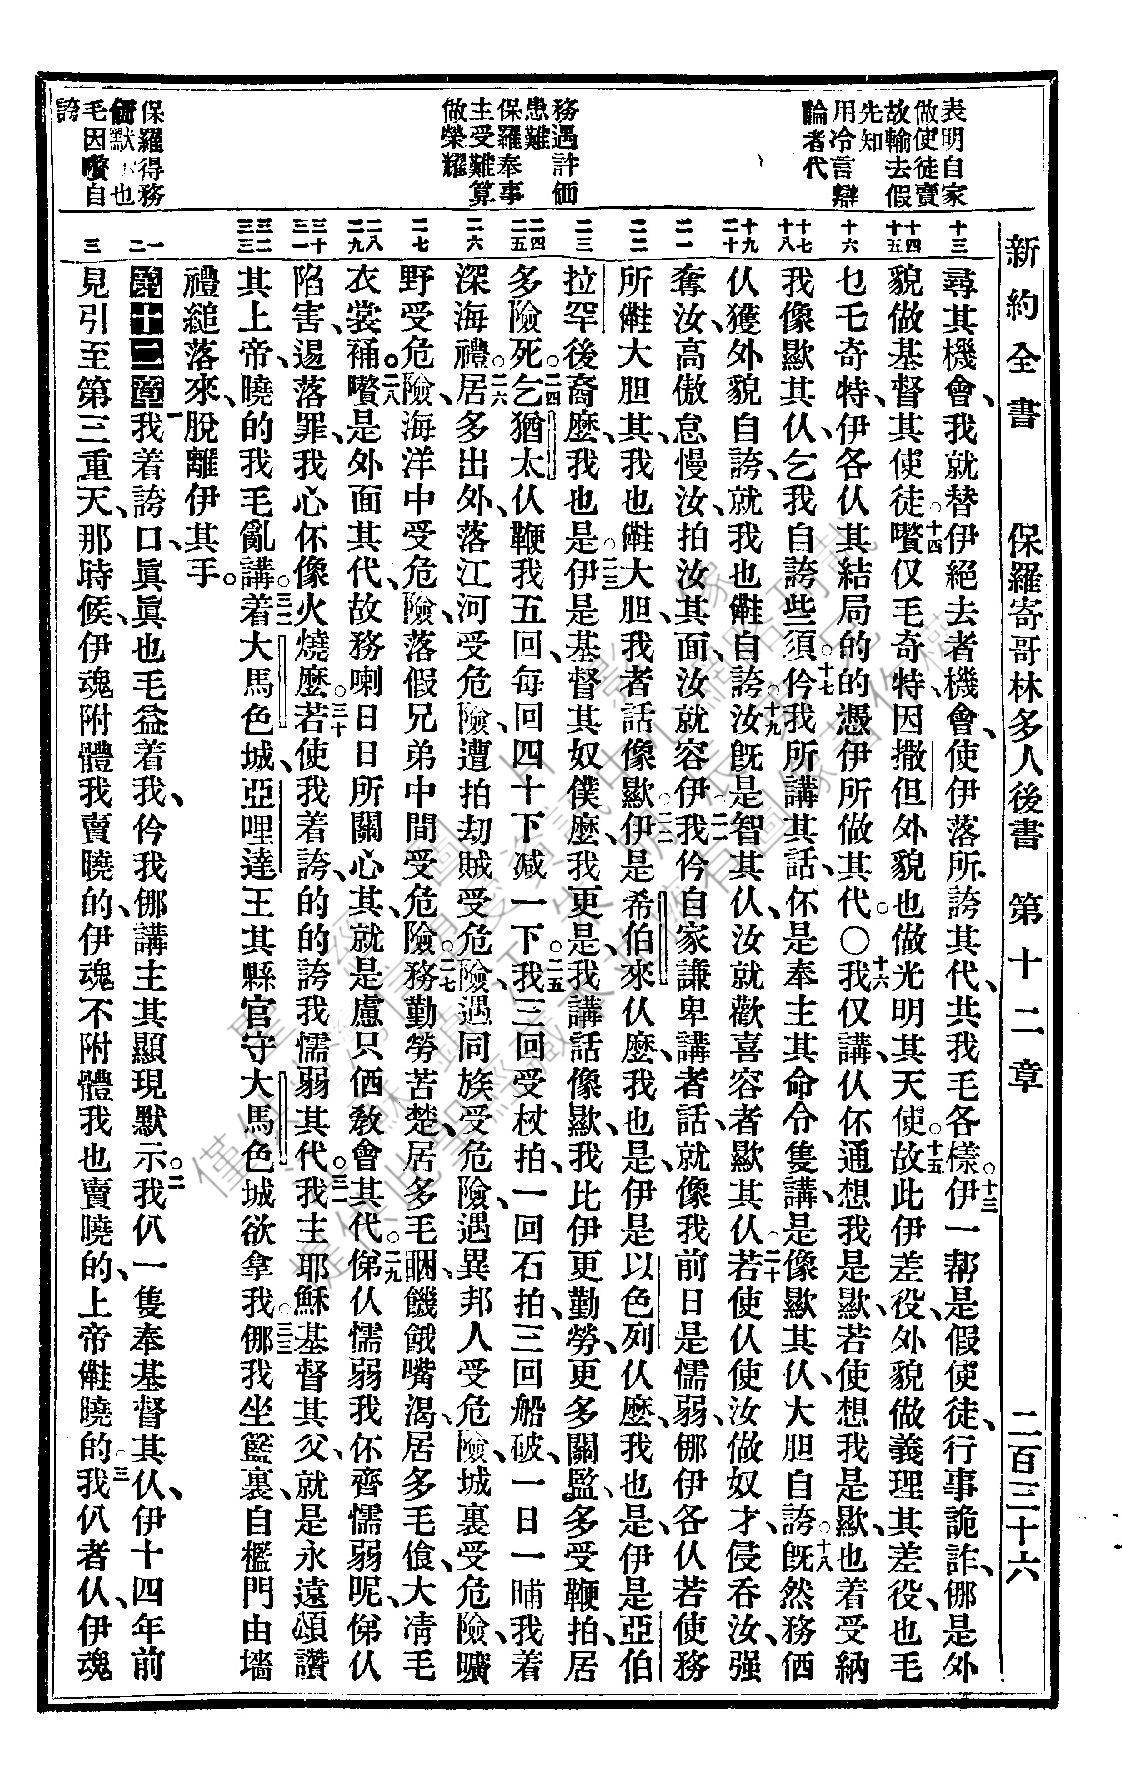 新約全書 保羅寄哥林多人後書 第十二章 二百三十六
表明自家
做使徒賣
故輸去假
先知
用冷言辯
論者代
務遇許価
患難
保羅奉事
主受難算
做榮耀
保羅得務
默示也
毛因嚽自
誇
十三
十四
十五
十六
十七
十八
十九
二十
二一
二二
二三
二四
二五
二六
二七
二八
二九
三十
三一
三二
三三
一
二
三
尋其機會、我就替伊絕去者機會、使伊落所誇其代、共我毛各樣。十三伊一幫是假使徒、行事詭詐、㑚是外
貌做基督其使徒。十四嚽仅毛奇特、因撒但外貌也做光明其天使。十五故此伊差役、外貌做義理其差役、也毛
乜乇奇特、伊各仈其結局的的憑伊所做其代。〇十六我仅講、仈伓通想我是歞、若使想我是歞、也着受納
我像歞其仈、乞我自誇些須。十七伱我所講其話、伓是奉主其命令隻講、是像歞其仈、大胆自誇。十八旣然務価
仈獲外貌自誇、就我也㒕自誇。十九汝旣是智其仈、汝就歡喜容者歞其仈。二十若使仈使汝做奴才、侵吞汝、强
奪汝、高傲怠慢汝、拍汝其面、汝就容伊。二一我伱自家謙卑講者話、就像我前日是懦弱、㑚伊各仈若使務
所㒕大胆其、我也㒕大胆、我者話像歞。二二伊是希伯來仈麽、我也是、伊是以色列仈麽、我也是、伊是亞伯
拉罕後裔麽、我也是。二三伊是基督其奴僕麽、我更是、我講話像歞、我比伊更勤勞、更多關監、多受鞭拍、居
多險死。二四乞猶太仈鞭我五回、每回四十下減一下。二五我三回受杖拍、一回石拍、三回船破、一日一晡我着
深海禮。二六居多出外、落江河受危險、遭拍刼賊受危險、遇同族受危險、遇異邦人受危險、城裏受危險、曠
野受危險、海洋中受危險、落假兄弟中間受危險。二七務勤勞苦楚、居多毛睏、饑餓嘴渴、居多毛飡、大凊毛
衣裳䘼。二八嚽是外面其代、故務喇日日所關心其、就是慮只価教會其代。二九俤仈懦弱我伓齊懦弱呢、俤仈
陷害、逿落罪、我心伓像火燒麽。三十若使我着誇、的的誇我懦弱其代。三一我主耶穌基督其父、就是永遠頌讚
其上帝、曉的我毛亂講。三二着大馬色城、亞哩達王其縣官守大馬色城欲拿我。三三㑚我坐籃裏、自檻門由墻
禮縋落來、脫離伊其手。
第十二章 一我着誇口、眞眞也毛益着我、伱我㑚講主其顯現默示。二我仈一隻奉基督其仈、伊十四年前
見引至第三重天、那時候、伊魂附體我賣曉的、伊魂不附體我也賣曉的、上帝㒕曉的。三我仈者仈、伊魂